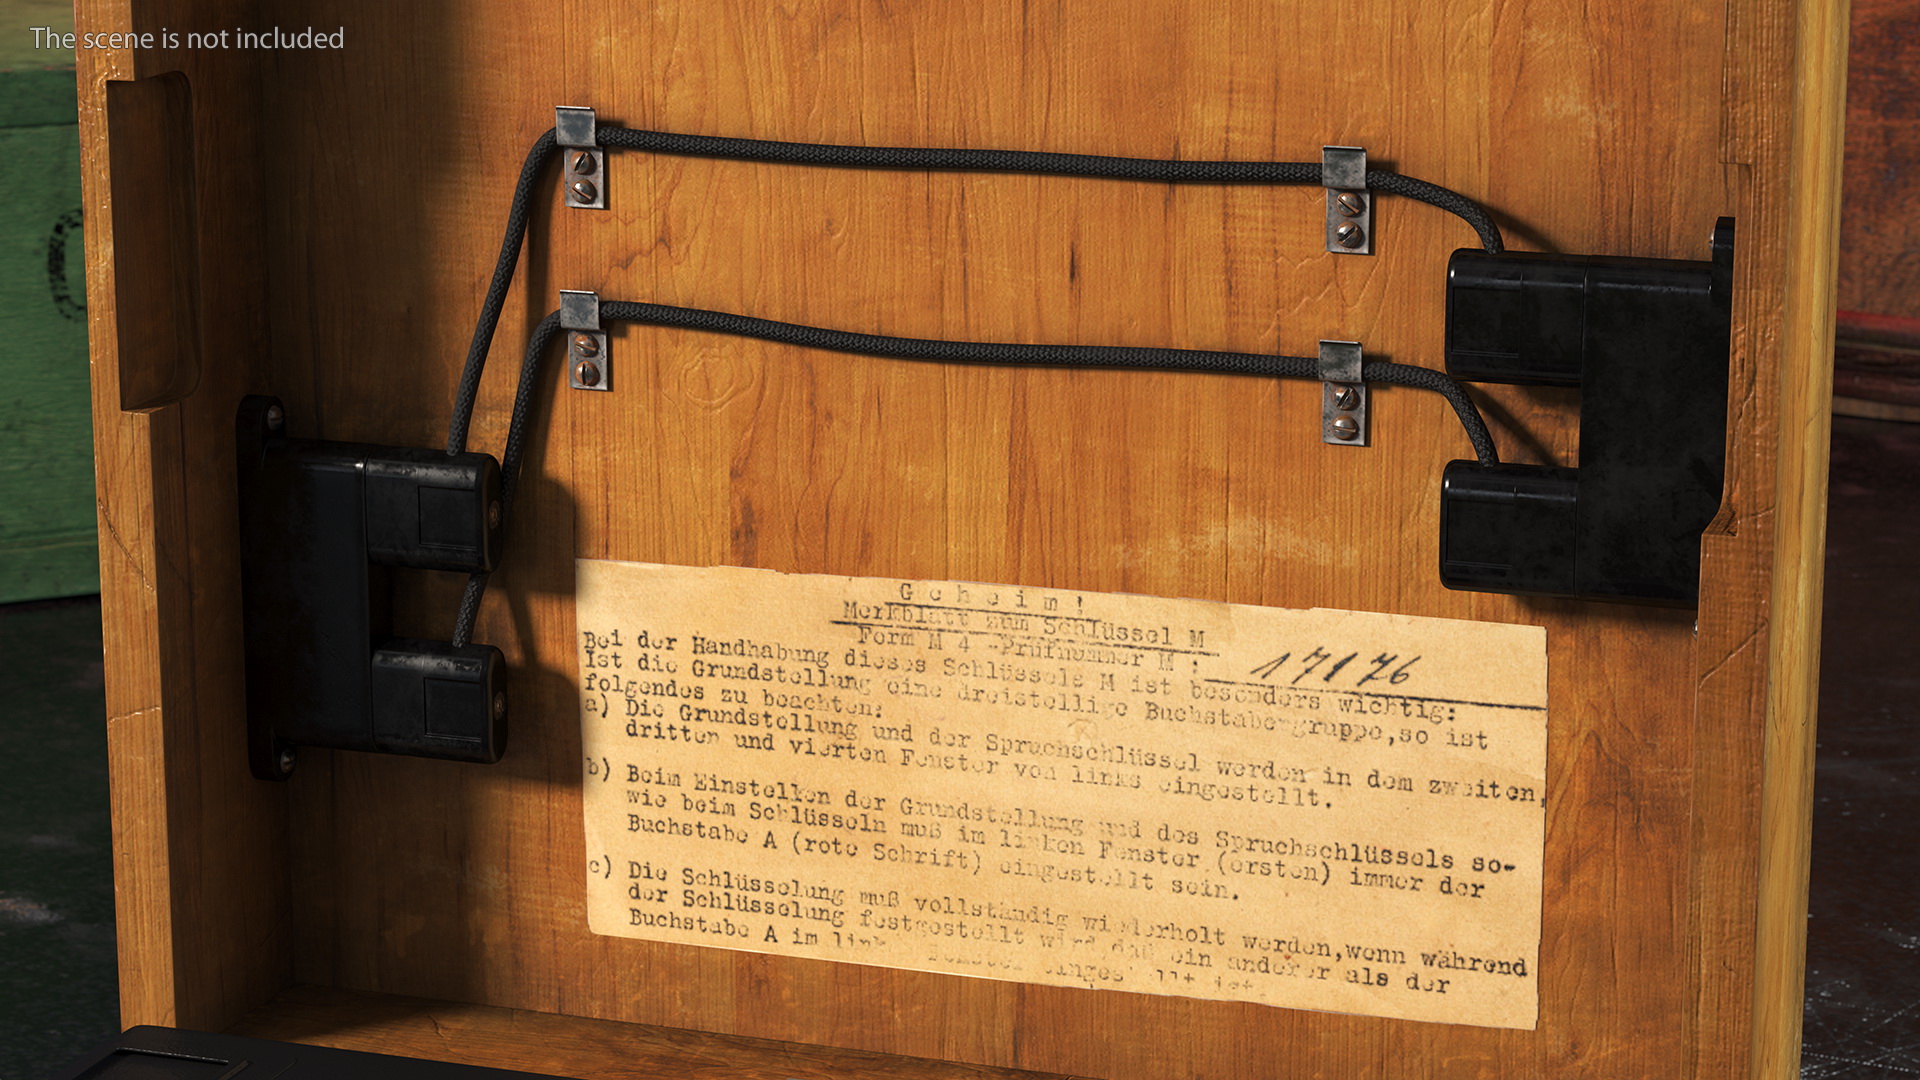 The scene is not included
Geheim!
Merkblatt zum Schlüssel M
Form M 4 -Prüfnummer M : 17176
Bei der Handhabung dieses Schlüssels M ist besonders wichtig:
Ist die Grundstellung eine dreistellige Buchstabengruppe,so ist
folgendes zu beachten:
a) Die Grundstellung und der Spruchschlüssel werden in dem zweiten,
dritten und vierten Fenster von links eingestellt.
b) Beim Einstellen der Grundstellung und des Spruchschlüssels so-
wie beim Schlüsseln muß im linken Fenster (ersten) immer der
Buchstabe A (rote Schrift) eingestellt sein.
c) Die Schlüsselung muß vollständig wiederholt werden,wenn während
der Schlüsselung festgestellt wird,daß ein anderer als der
Buchstabe A im Fenster